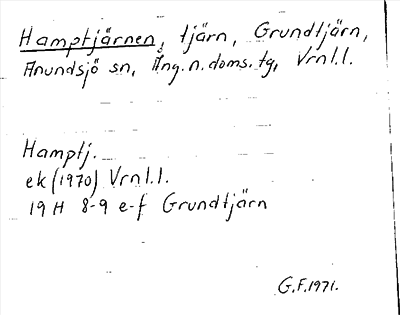 Hamptjärnen, tjärn, Grundtjärn,
Anundsjö sn, Ång. n. doms. tg, Vrnl.l.
Hamptj.
ek (1970) Vrnl.l.
19 H 8-9 e-f Grundtjärn
G.F. 1971.